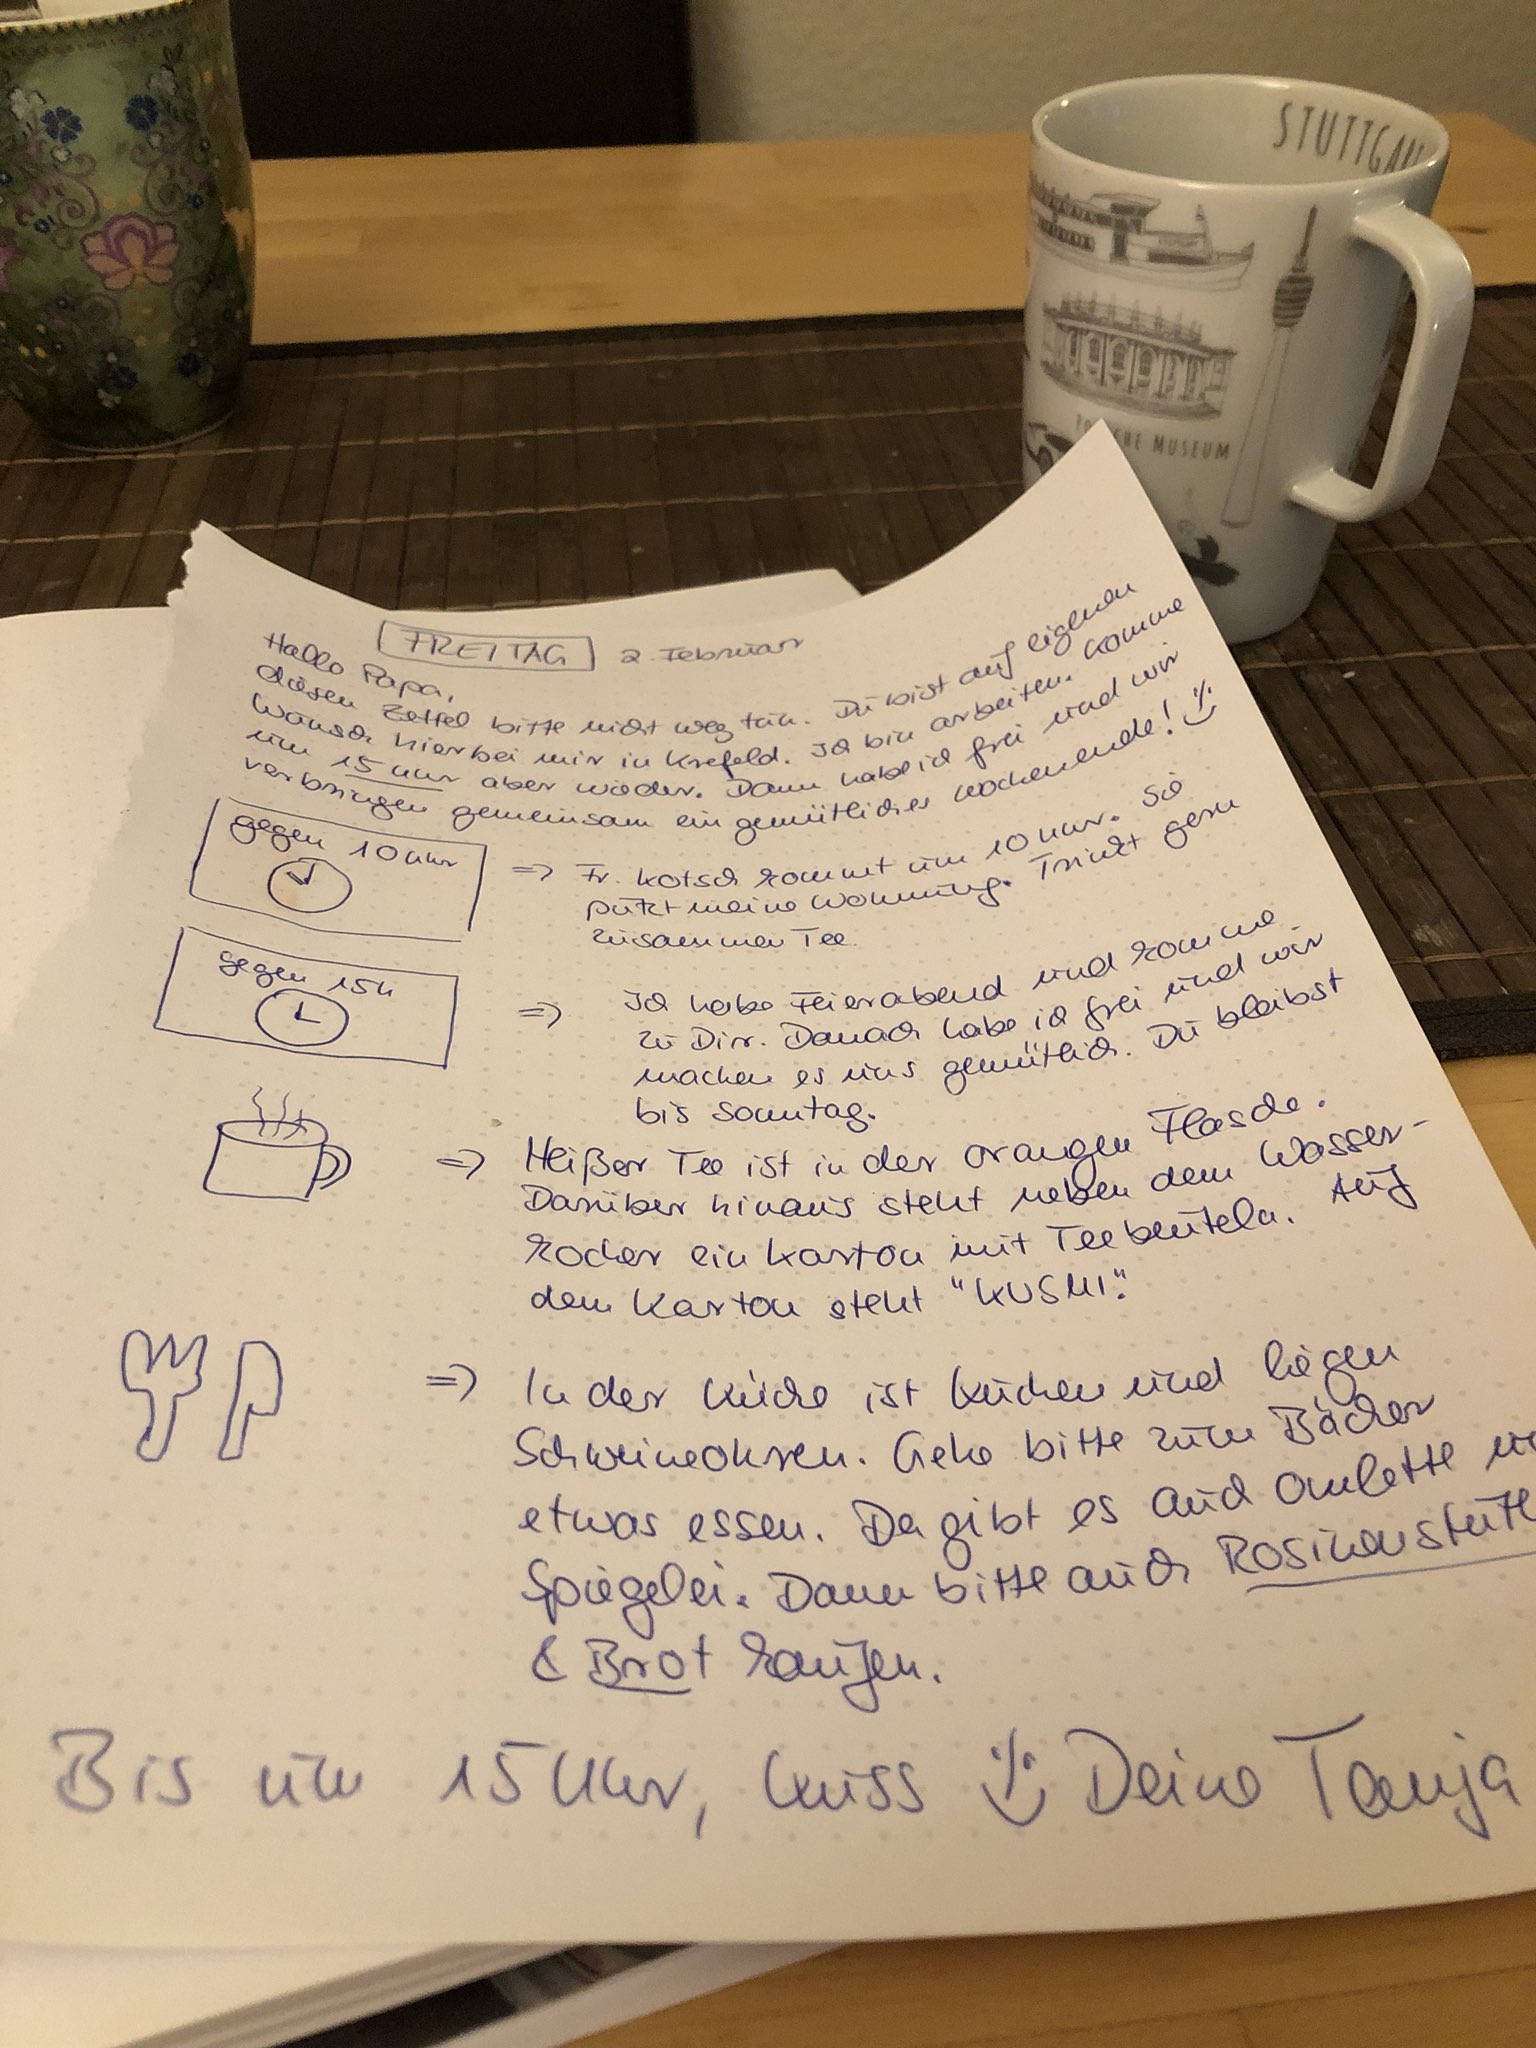 STUTTGA
PORSCHE MUSEUM
FREITAG 2. Februar
Hallo Papa,
diesen Zettel bitte nicht weg tun. Du bist auf eigenen
Wunsch hier bei mir in Krefeld. Ich bin arbeiten. Komme
um 15 Uhr aber wieder. Dann habe ich frei und wir
verbringen gemeinsam ein gemütliches Wochenende!
gegen 10 Uhr
=> Fr. Kotsch kommt um 10 Uhr. Sie
putzt meine Wohnung. Trinkt gern
zusammen Tee.
gegen 15h
=> Ich habe Feierabend und komme
zu Dir. Danach habe ich frei und wir
machen es uns gemütlich. Du bleibst
bis Sonntag.
=> Heißer Tee ist in der orangen Flasche.
Darüber hinaus steht neben dem Wasser-
kocher ein Karton mit Teebeuteln. Auf
dem Karton steht "KUSMI".
=> In der Küche ist Kuchen und liegen
Schweineohren. Gehe bitte zum Bäcker
etwas essen. Da gibt es auch Omlette u
Spiegelei. Dann bitte auch Rosinenstute
& Brot kaufen.
Bis um 15 Uhr, Kuss Deine Tanja